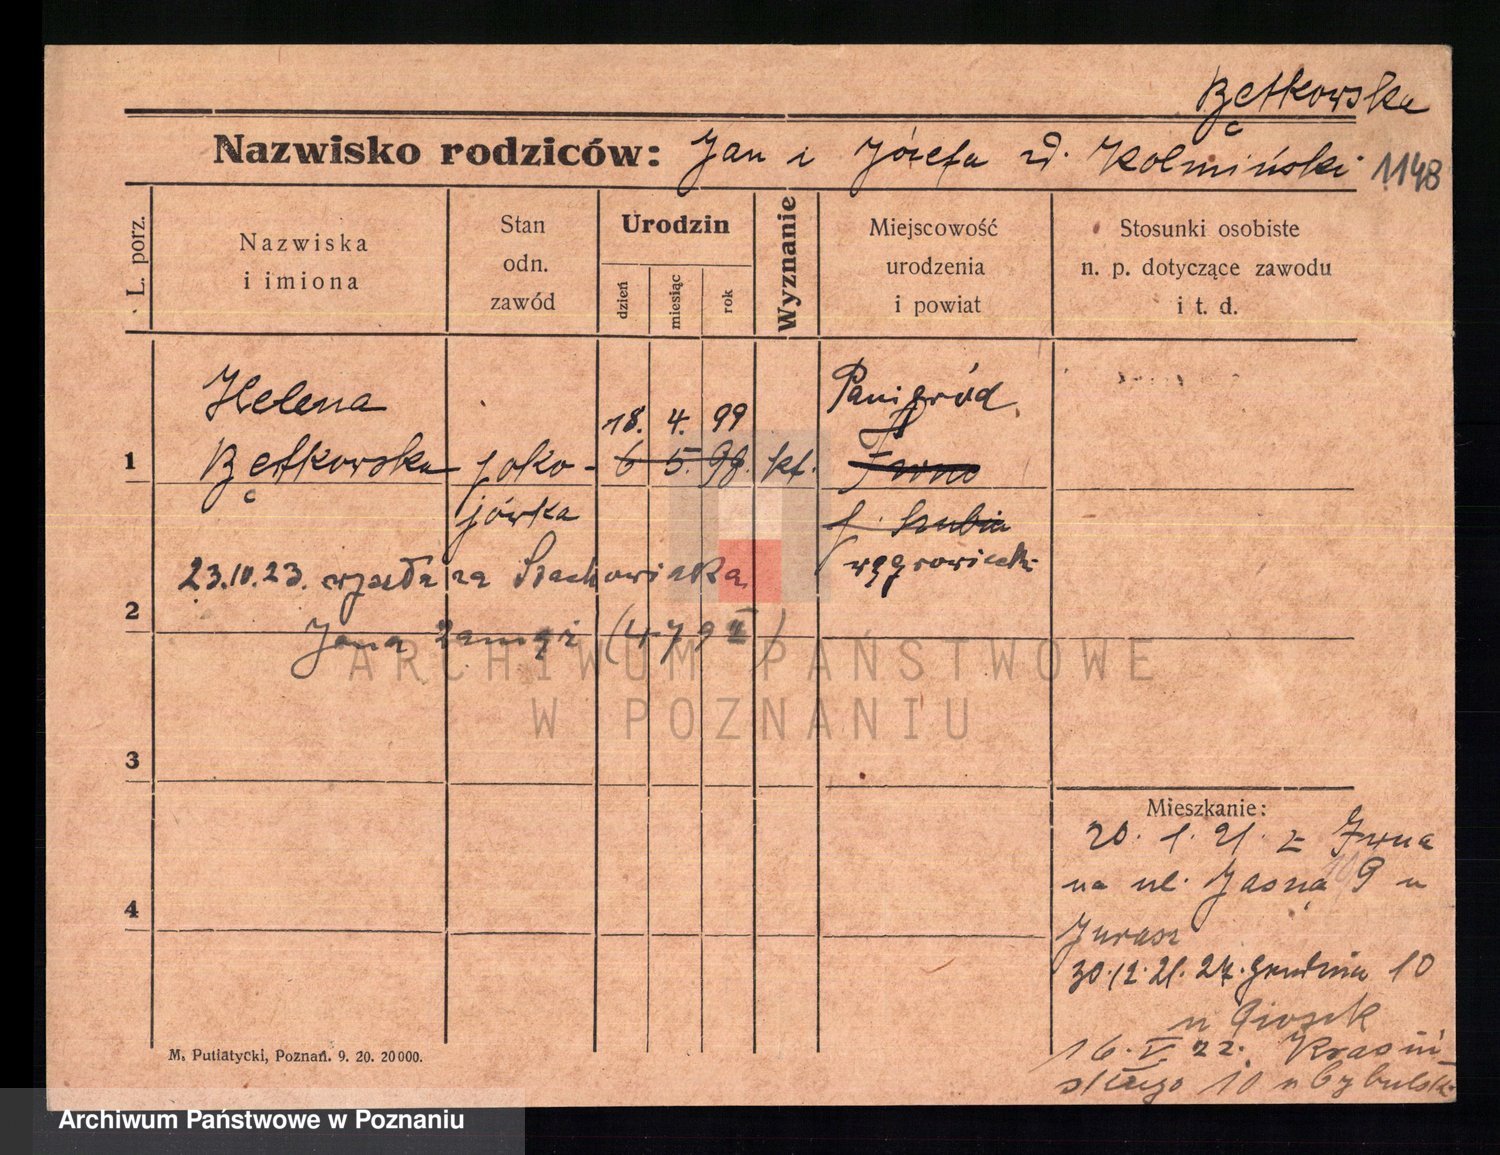 Bętkowska
Nazwisko rodziców: Jan i Józefa zd. Kolmiński 1148
L. porz.
Nazwiska
i imiona
Stan
odn.
zawód
Urodzin
dzień
miesiąc
rok
Wyznanie
Miejscowość
urodzenia
i powiat
Stosunki osobiste
n. p. dotyczące zawodu
i t. d.
Helena
Panigród
18. 4. 99
1 Bętkowska poko- 6 5. 98. kt. Żnino
jówka p. Szubin
wągrowiecki
23.10.23. wyszła za Stachowiaka
2
Jana zamąż (4 7 9
ARCHIWUM PAŃSTWOWE
W POZNANIU
3
Mieszkanie:
20. 1. 21. z Żnina
na ul. Jasna 9 u
4
Jurasz
30.12.21. 27. grudnia 10
u
16. V. 22. Krasiń-
skiego 10 u Cybulski
M. Putiatycki, Poznań. 9. 20. 20000.
Archiwum Państwowe w Poznaniu